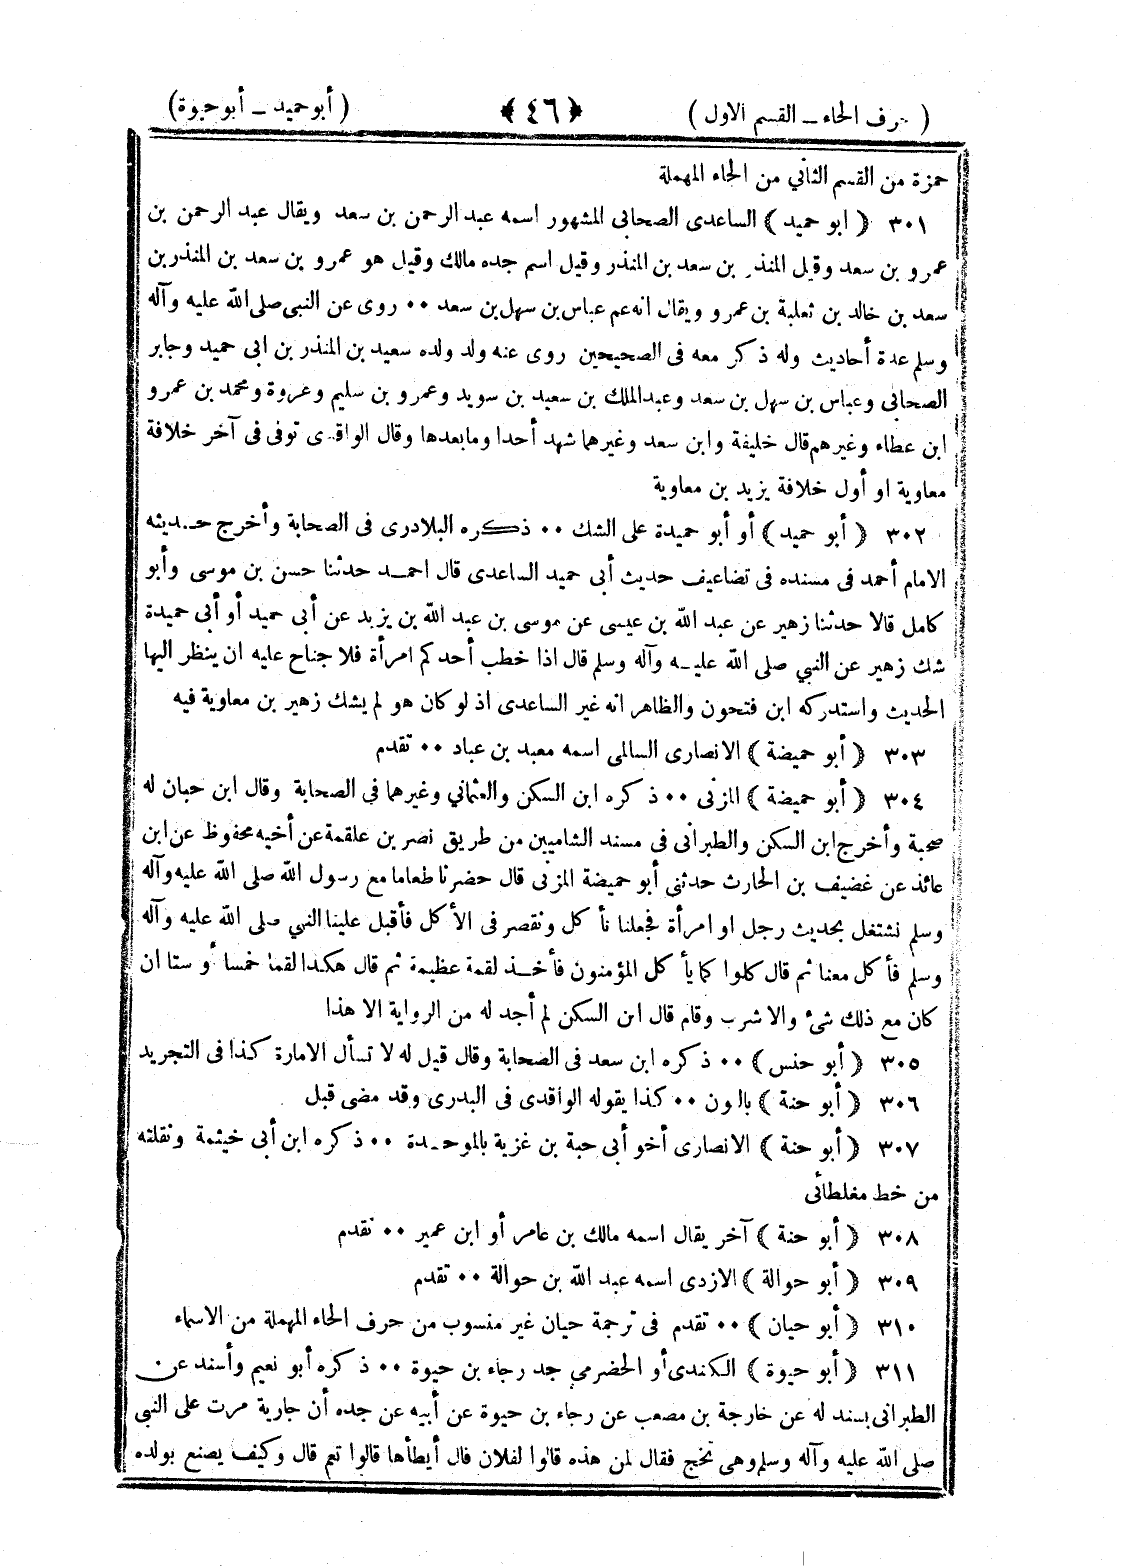 ( حرف الحاء ــ القسم الاول ) ﴿ ٤٦ ﴾ ( أبو حميد ــ أبو حيوة )
حمزة من القسم الثاني من الحاء المهملة
٣٠١ ( ابو حميد ) الساعدى الصحابى المشهور اسمه عبد الرحمن بن سعد ويقال عبد الرحمن بن
عمرو بن سعد وقيل المنذر بن سعد بن المنذر وقيل اسم جده مالك وقيل هو عمرو بن سعد بن المنذر بن
سعد بن خالد بن ثعلبة بن عمرو ويقال انه عم عباس بن سهل بن سعد ٠٠ روى عن النبى صلى الله عليه وآله
وسلم عدة أحاديث وله ذكر معه فى الصحيحين روى عنه ولد ولده سعيد بن المنذر بن ابى حميد وجابر
الصحابى وعباس بن سهل بن سعد وعبد الملك بن سعيد بن سويد وعمرو بن سليم وعروة ومحمد بن عمرو
ابن عطاء وغيرهم قال خليفة وابن سعد وغيرهما شهد أحدا وما بعدها وقال الواقدى توفى فى آخر خلافة
معاوية او أول خلافة يزيد بن معاوية
٣٠٢ ( أبو حميد ) أو أبو حميدة على الشك ٠٠ ذكره البلادرى فى الصحابة وأخرج حديثه
الامام أحمد فى مسنده فى تضاعيف حديث أبى حميد الساعدى قال احمد حدثنا حسن بن موسى وأبو
كامل قالا حدثنا زهير عن عبد الله بن عيسى عن موسى بن عبد الله بن يزيد عن أبى حميد أو أبى حميدة
شك زهير عن النبي صلى الله عليه وآله وسلم قال اذا خطب أحدكم امرأة فلا جناح عليه ان ينظر اليها
الحديث واستدركه ابن فتحون والظاهر انه غير الساعدى اذ لو كان هو لم يشك زهير بن معاوية فيه
٣٠٣ ( أبو حميضة ) الانصارى السالمى اسمه معبد بن عباد ٠٠ تقدم
٣٠٤ ( أبو حميضة ) المزنى ٠٠ ذكره ابن السكن والعثمانى وغيرهما فى الصحابة وقال ابن حبان له
صحبة وأخرج ابن السكن والطبرانى فى مسند الشاميين من طريق نصر بن علقمة عن أخيه محفوظ عن ابن
عائذ عن غضيف بن الحارث حدثنى أبو حميضة المزنى قال حضرنا طعاما مع رسول الله صلى الله عليه وآله
وسلم نشتغل بحديث رجل او امرأة فجعلنا نأكل ونقصر فى الأكل فأقبل علينا النبي صلى الله عليه وآله
وسلم فأكل معنا ثم قال كلوا كما يأكل المؤمنون فأخذ لقمة عظيمة ثم قال هكذا لقما خمسا أو ستا ان
كان مع ذلك شئ والا شرب وقام قال ابن السكن لم أجد له من الرواية الا هذا
٣٠٥ ( أبو حنس ) ٠٠ ذكره ابن سعد فى الصحابة وقال قيل له لا تسأل الامارة كذا فى التجريد
٣٠٦ ( أبو حنة ) بالنون ٠٠ كذا يقوله الواقدى فى البدرى وقد مضى قبل
٣٠٧ ( أبو حنة ) الانصارى أخو أبى حبة بن غزية بالموحدة ٠٠ ذكره ابن أبى خيثمة ونقلته
من خط مغلطائى
٣٠٨ ( أبو حنة ) آخر يقال اسمه مالك بن عامر أو ابن عمير ٠٠ تقدم
٣٠٩ ( أبو حوالة ) الازدى اسمه عبد الله بن حوالة ٠٠ تقدم
٣١٠ ( أبو حيان ) ٠٠ تقدم فى ترجمة حيان غير منسوب من حرف الحاء المهملة من الاسماء
٣١١ ( أبو حيوة ) الكندى أو الحضرمي جد رجاء بن حيوة ٠٠ ذكره أبو نعيم وأسند عن
الطبرانى بسند له عن خارجة بن مصعب عن رجاء بن حيوة عن أبيه عن جده أن جارية مرت على النبي
صلى الله عليه وآله وسلم وهى تخج فقال لمن هذه قالوا لفلان قال أيطأها قالوا نعم قال وكيف يصنع بولده